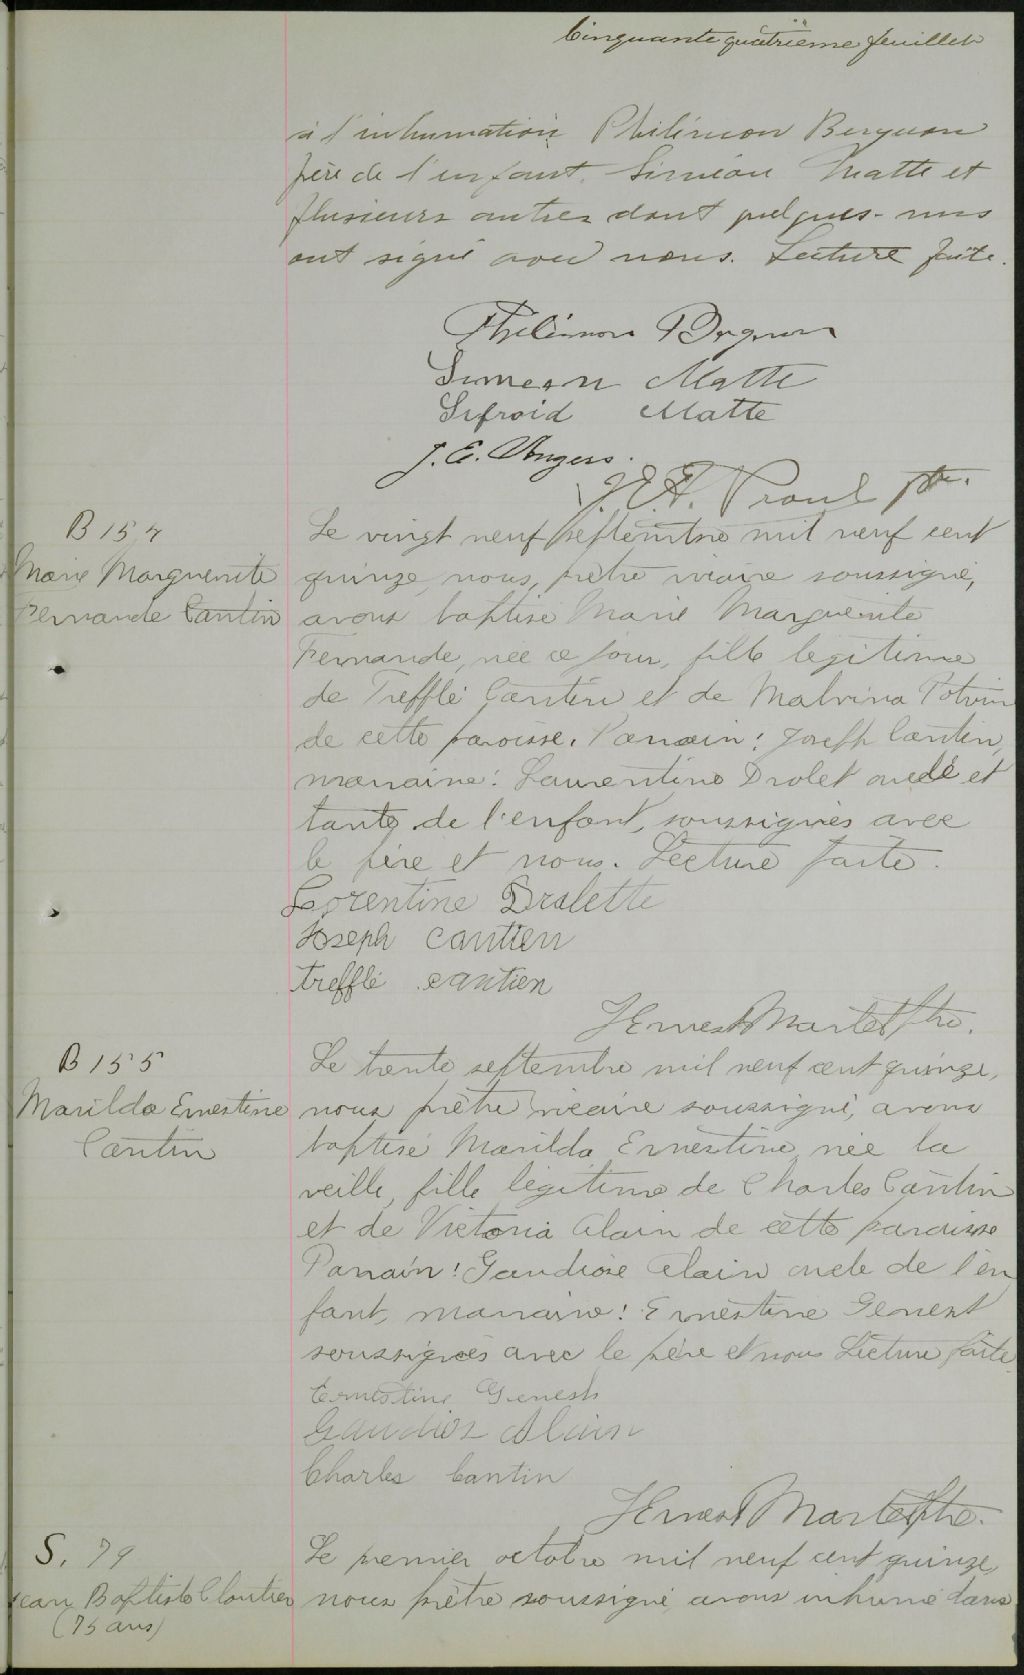 Cinquante quatrième feuillet
à l'inhumation Philémon
père de l'enfant. Siméon Matte et
plusieurs autres dont quelques-uns
ont signé avec nous. Lecture faite.
Philémon
Simeon Matte
Sifroid Matte
J. E. Angers.
J. E. A. Proul ptr.
B 154
Marie Marguerite
Fernande Cantin
Le vingt neuf septembre mil neuf cent
quinze, nous, prêtre vicaire soussigné,
avons baptisé Marie Marguerite
Fernande, née ce jour, fille legitime
de Trefflé Cantin et de Malvina Potvin
de cette paroisse. Parrain: Joseph Cantin,
marraine: Laurentine Drolet oncle et
tante de l'enfant, soussignés avec
le père et nous. Lecture faite.
Lorentine Drolette
Joseph cantien
trefflé cantien
JErnest Martel Ptre.
B 155
Marilda Ernestine
Cantin
Le trente septembre mil neuf cent quinze,
nous prêtre vicaire soussigné, avons
baptisé Marilda Ernestine née la
veille, fille légitime de Charles Cantin
et de Victoria Alain de cette paroisse
Parrain: Gaudiose Alain oncle de l'en
fant, marraine: Ernestine Genest
soussignés avec le père et nous Lecture faite.
Ernestine Genest
Gaudios Alain
Charles Cantin
JErnest Martel Ptre.
S. 79
Jean Baptiste Cloutier
(75 ans)
Le premier octobre mil neuf cent quinze,
nous prêtre soussigné avons inhumé dans